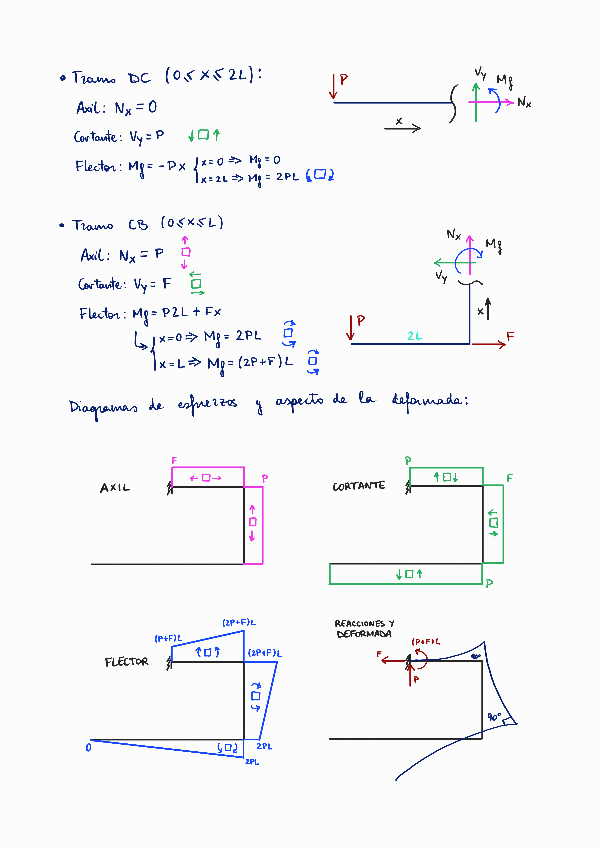 • Tramo DC (0≤x≤2L):
Axil: Nx = 0
Cortante: Vy = P
Flector: Mf = -Px { x=0 => Mf = 0
x=2L => Mf = 2PL
P
x
Vy
Mf
Nx
• Tramo CB (0≤x≤L)
Axil: Nx = P
Cortante: Vy = F
Flector: Mf = P2L + Fx
x=0 => Mf = 2PL
x=L => Mf = (2P+F)L
Nx
Mf
Vy
x
P
2L
F
Diagramas de esfuerzos y aspecto de la deformada:
AXIL
F
P
CORTANTE
P
F
P
FLECTOR
(P+F)L
(2P+F)L
(2P+F)L
0
2PL
2PL
REACCIONES Y
DEFORMADA
(P+F)L
F
P
90°
90°